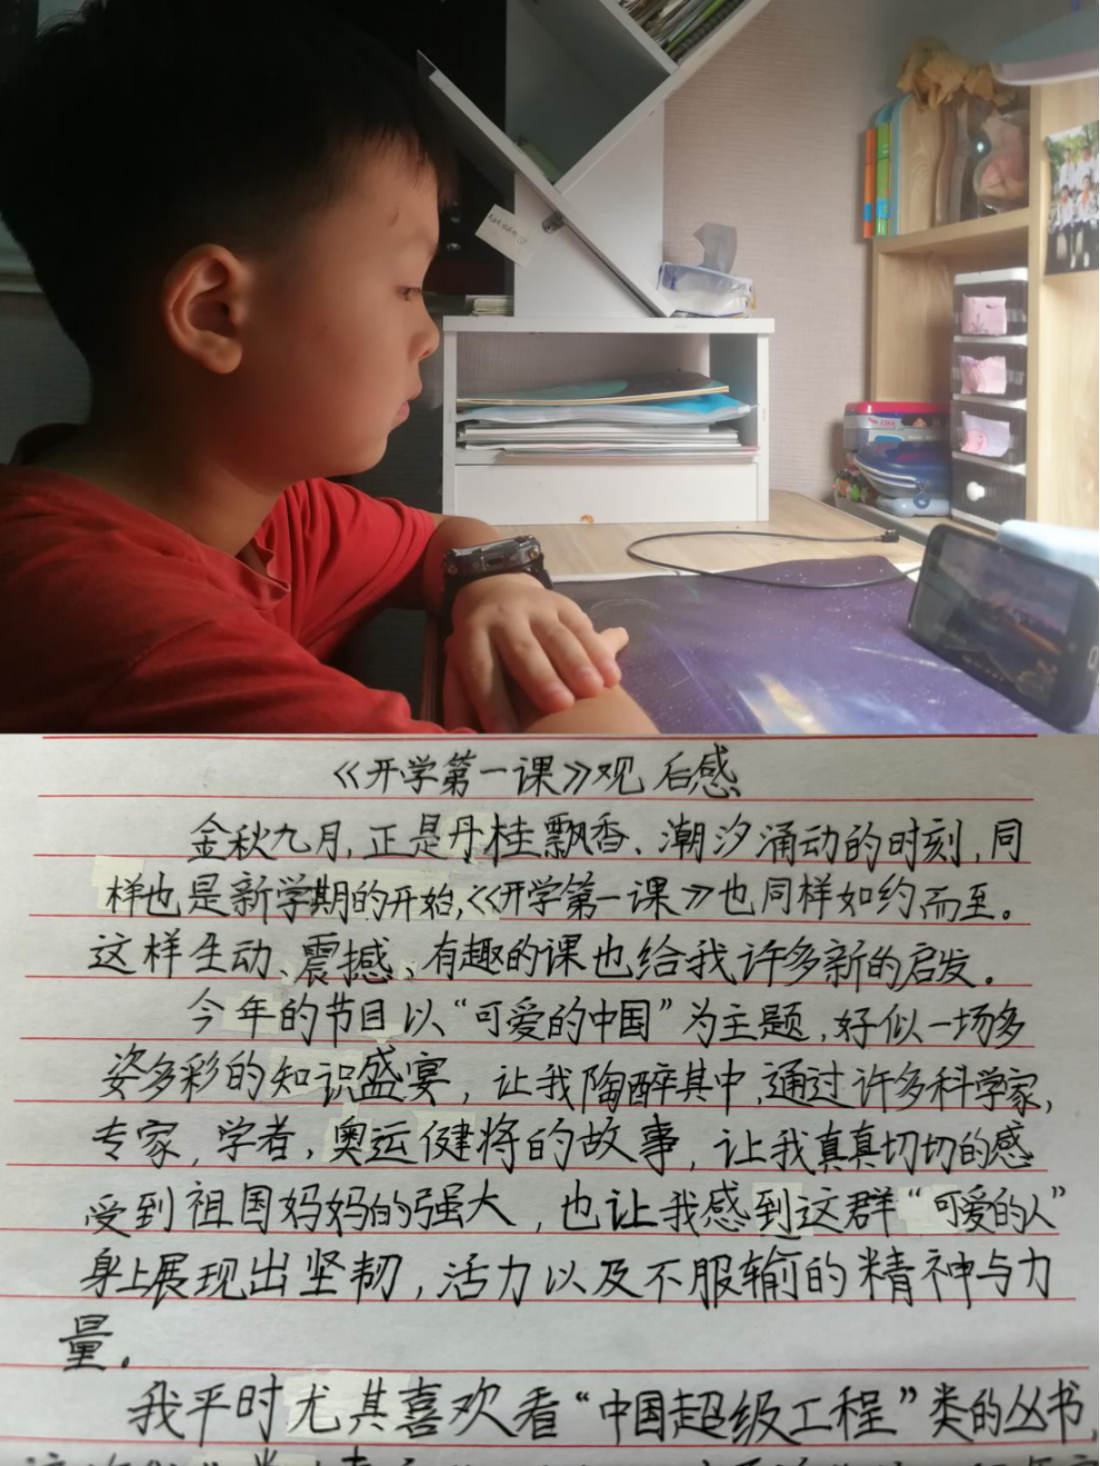 《开学第一课》观后感
金秋九月,正是丹桂飘香、潮汐涌动的时刻,同
样也是新学期的开始,《开学第一课》也同样如约而至。
这样生动、震撼、有趣的课也给我许多新的启发。
今年的节目以“可爱的中国”为主题,好似一场多
姿多彩的知识盛宴,让我陶醉其中,通过许多科学家,
专家,学者,奥运健将的故事,让我真真切切的感
受到祖国妈妈的强大,也让我感到这群“可爱的人”
身上展现出坚韧,活力以及不服输的精神与力
量。
我平时尤其喜欢看“中国超级工程”类的丛书,